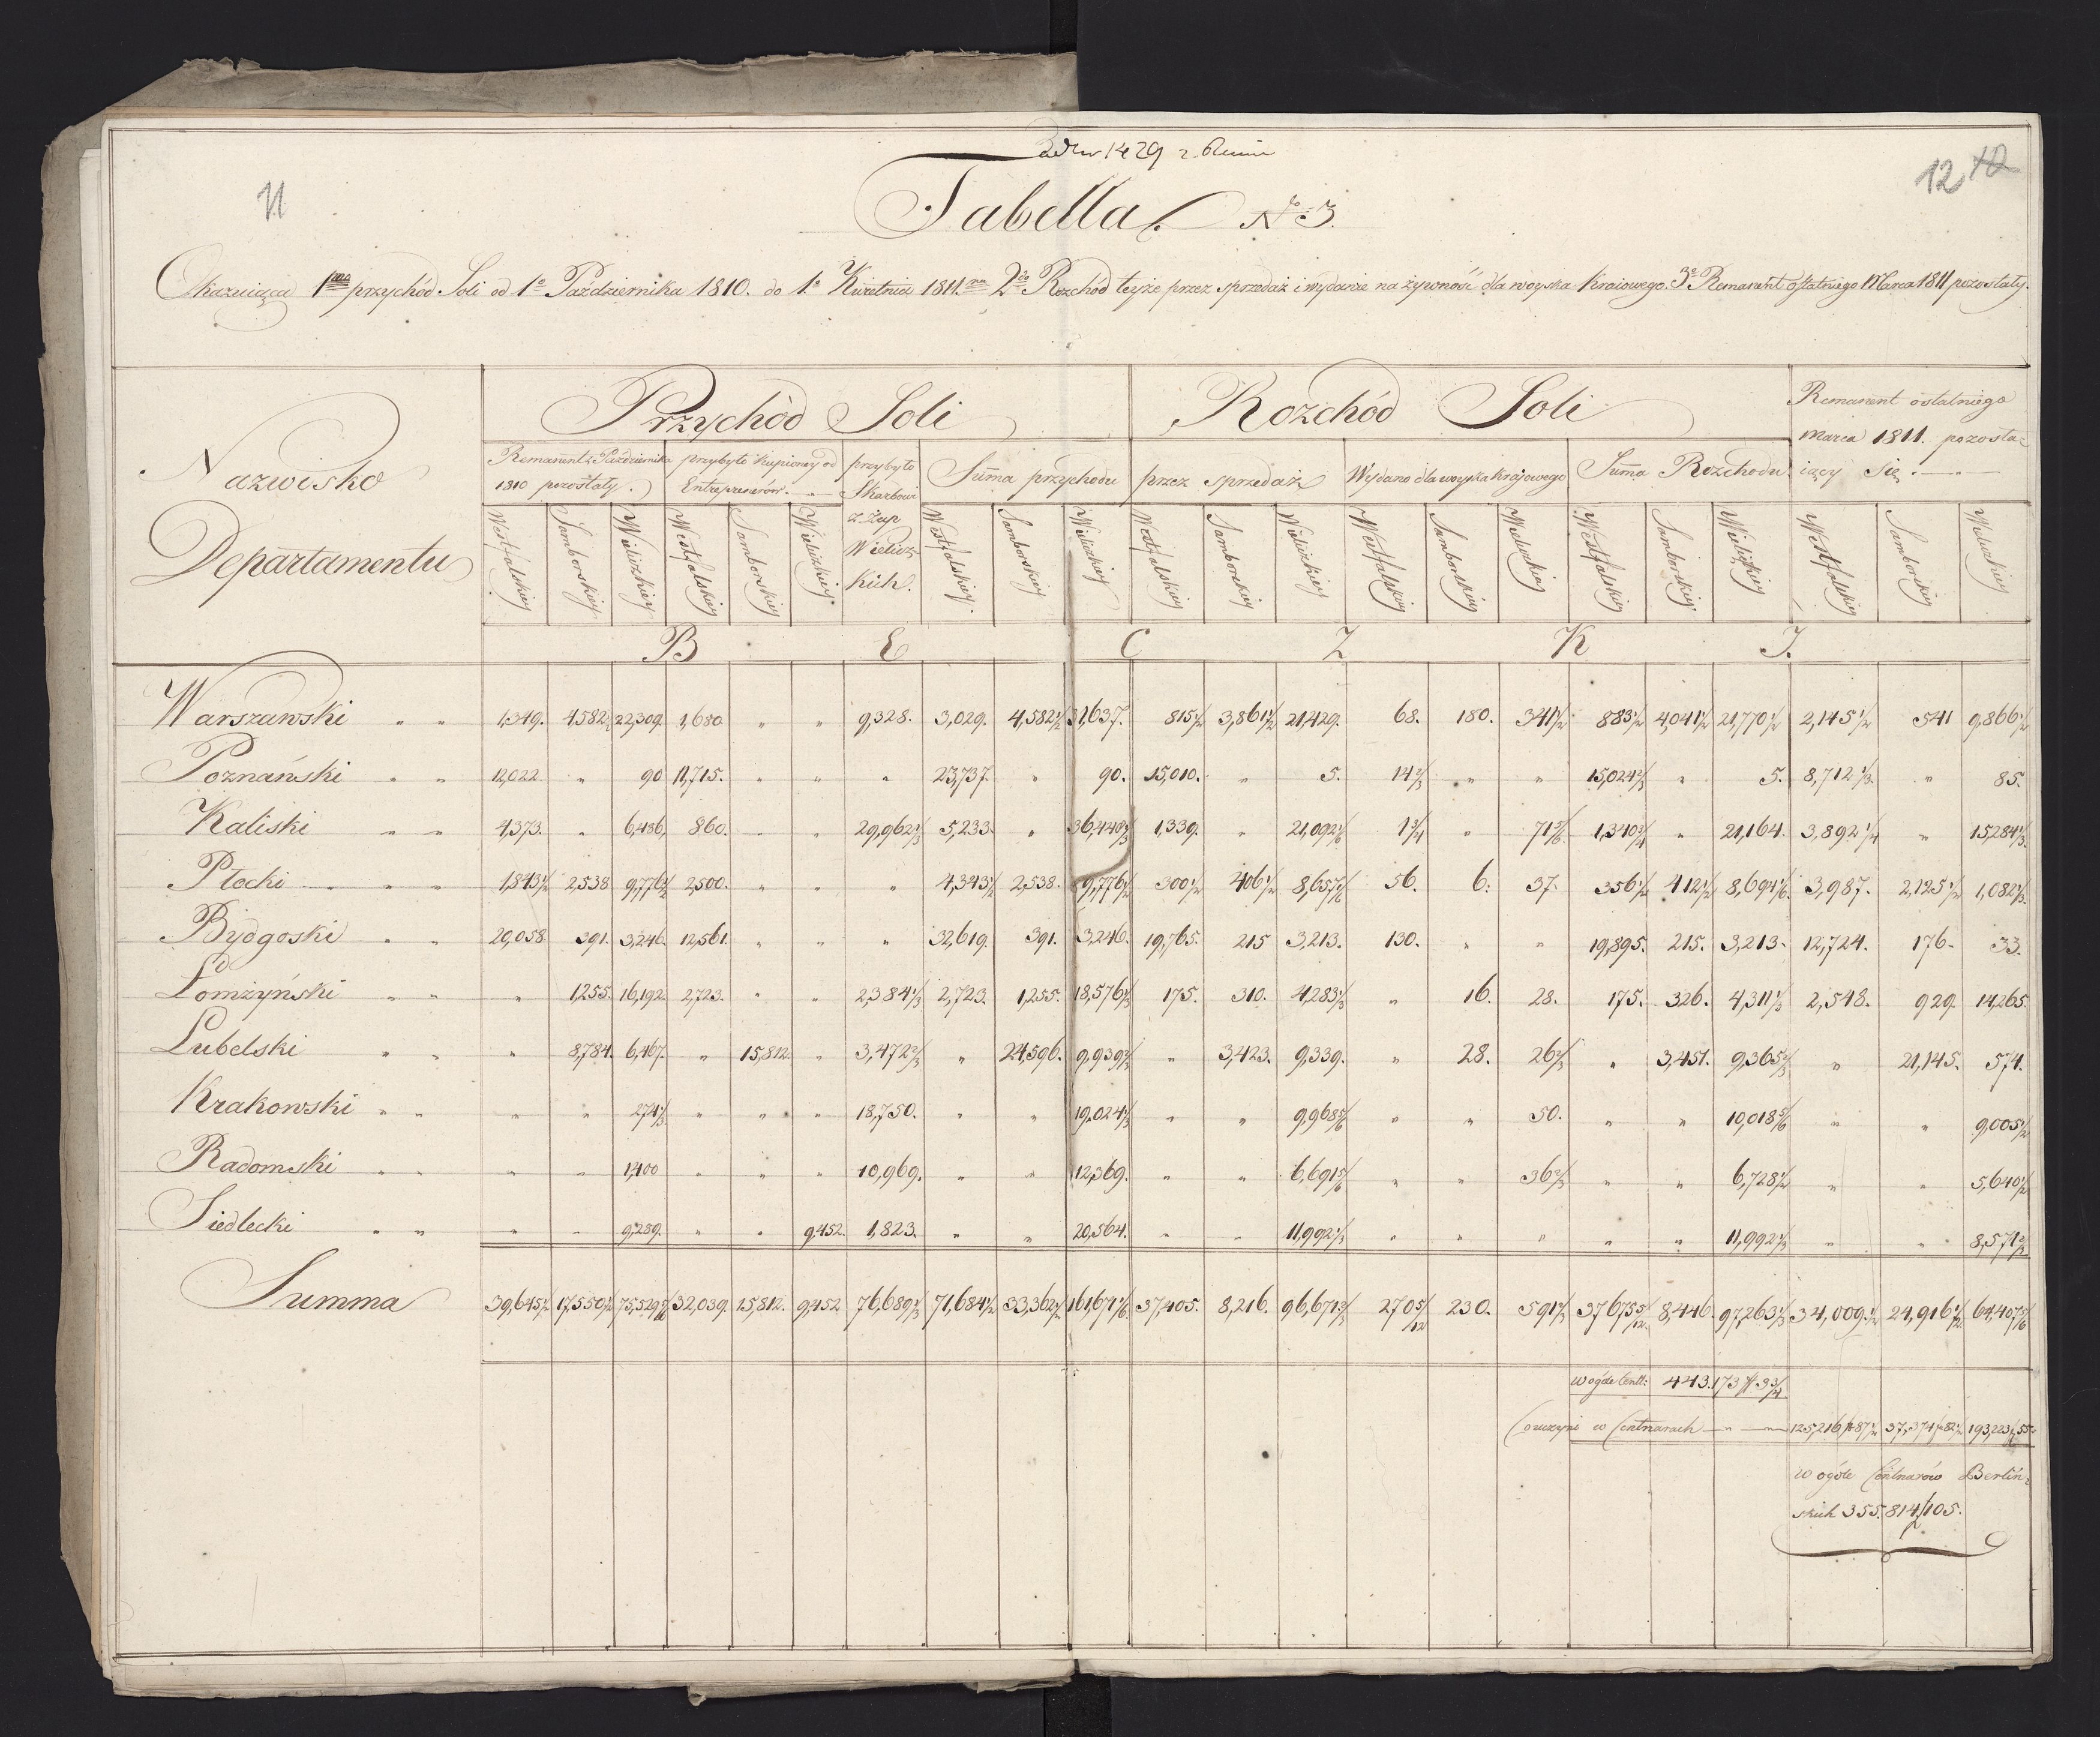 1429
11
12 10
Tabella. No 3.
Okazuiąca 1mo przychód Soli od 1o Października 1810. do 1o Kwietnia 1811. 2do Rozchód teyże przez sprzedaż i wydanie na żywność dla woyska kraiowego. 3o Remanent ostatniego Marca 1811 pozostały.
Nazwisko Departamentu
Przychód Soli
Rozchód Soli
Remanent ostatniego marca 1811. pozostaiący się.
Remanent z Października 1810 pozostały.
przybyło kupioney od Entrepreneurów.
przybyło Skarbowi z Żup Wieliczkich.
Suma przychodu
przez sprzedaż
Wydano dla woyska krajowego
Suma Rozchodu
Westfalskiey Samborskiey Wieliczkiey Westfalskiey Samborskiey Wieliczkiey Westfalskiey Samborskiey Wieliczkiey Westfalskiey Samborskiey Wieliczkiey Westfalskiey Samborskiey Wieliczkiey Westfalskiey Samborskiey Wieliczkiey Westfalskiey Samborskiey Wieliczkiey
B E C Z K I.
Warszawski " " 1,349. 4582½ 22,309. 1,680 " " 9,328. 3,029. 4,582½ 31,637. 815½ 3,861½ 21,429. 68. 180. 341½ 883½ 4,041½ 21,770½ 2,145½ 541 9,866½
Poznański " " 12,022 " 90 11,715. " " " 23,737. " 90. 15,010. " 5. 14⅔ " " 15,024⅔ " 5. 8,712⅓ " 85.
Kaliski " " 4,373. " 6,486, 860. " " 29,962⅓ 5,233. " 36,448⅓ 1,339. " 21,092⅙ 1¾ " 71⅚ 1,340¾ " 21,164. 3,892¼ " 15,284⅓
Płocki " " 1,843½ 2,538 9,776½ 2,500. " " " 4,343½ 2,538. 9,776½ 300½ 406½ 8,657⅙ 56. 6. 37. 356½ 412½ 8,694⅙ 3,987. 2,125½ 1,082⅓
Bydgoski " " 20,058. 391. 3,246. 12,561. " " " 32,619. 391. 3,246. 19,765. 215 3,213. 130. " " 19,895. 215. 3,213. 12,724. 176. 33.
Łomżyński " " " 1,255. 16,192. 2,723. " " 2,384⅓ 2,723. 1,255. 18,576⅓ 175. 310. 4,283⅓ " 16. 28. 175. 326. 4,311⅓ 2,548. 929. 14,265.
Lubelski " " " 8,784. 6,467. " 15,812. " 3,472⅔ " 24,596. 9,939⅔ " 3,423. 9,339. " 28. 26⅔ " 3,451. 9,365⅔ " 21,145. 574.
Krakowski " " " " 274⅓ " " " 18,750. " " 19,024⅓ " " 9,968⅚ " " 50. " " 10,018⅚ " " 9,005½
Radomski " " " " 1,400 " " " 10,969. " " 12,369. " " 6,691⅚ " " 36⅔ " " 6,728½ " " 5,640½
Siedlecki " " " " 9,289. " " 9,452. 1,823. " " 20,564. " " 11,992⅓ " " " " " 11,992⅓ " " 8,571⅔
Summa 39,645½ 17,550½ 32,039. 15,812. 9,452 76,689⅓ 71,684½ 33,362½ 161,671⅙ 37,405. 8,216. 96,671⅔ 270 5/12 230. 591⅔ 37675 5/12. 8,446. 97,263⅓ 34,009 24,916½ 64,407⅚
w ogóle Centl: 443.173 ℔ 33/4
Co uczyni w Centnarach 125,216 ℔ 87½ 37,374 ℔ 82½ 193,223 ℔ 55
w ogóle Centnarów Berlińskich 355.814 ℔ 105.